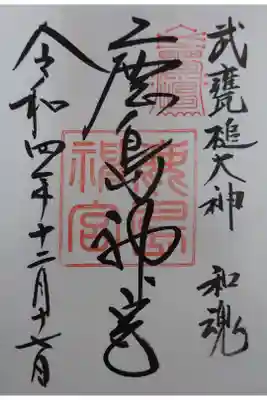 武甕槌大神 和魂
鹿島神宮
令和四年十二月十七日
鹿島
神宮